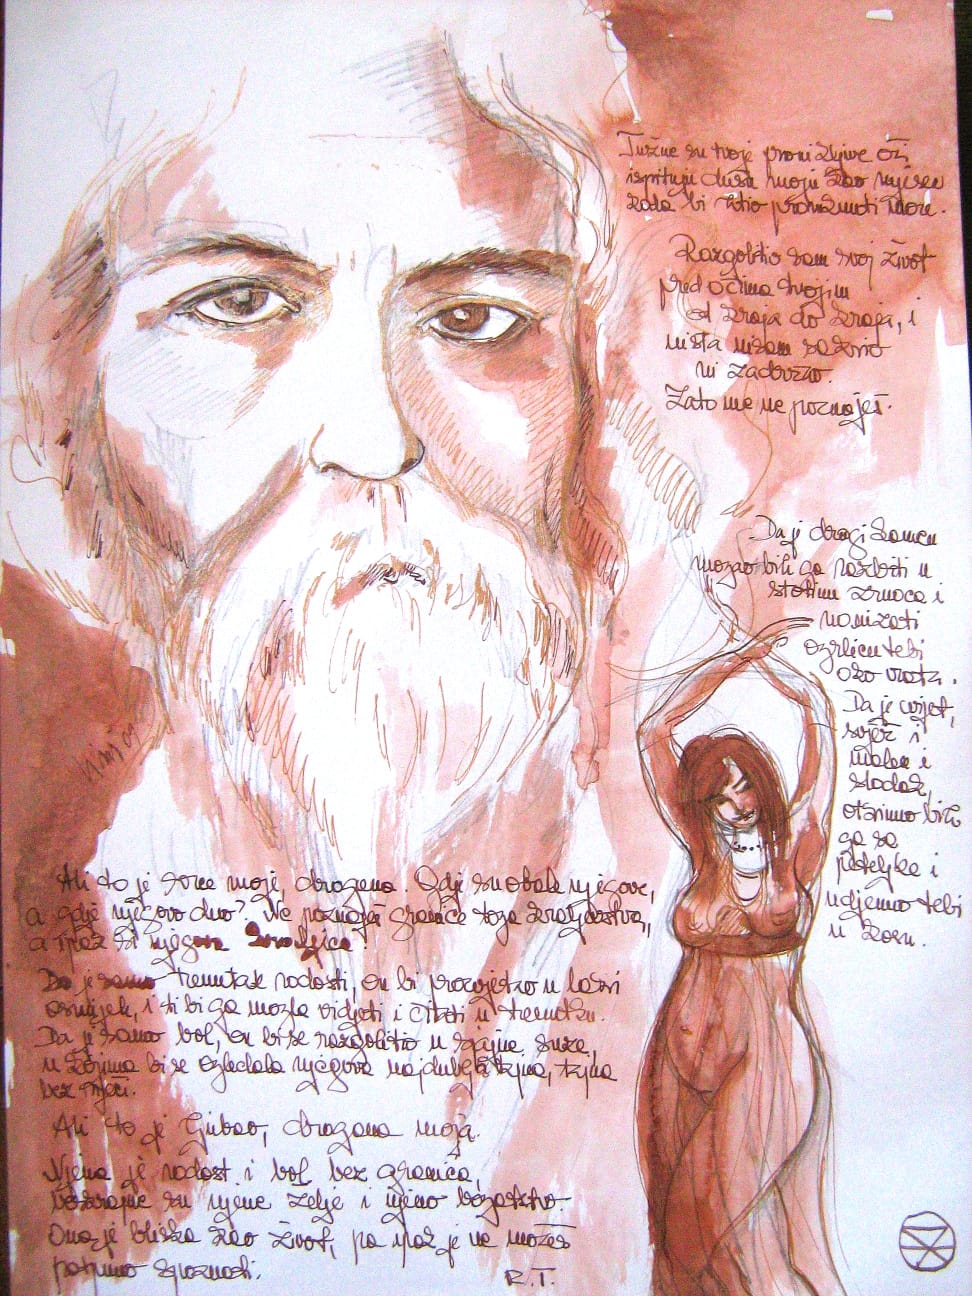 Tužne su tvoje pronicljive oči
ispituju dušu moju kao mjesec
kada bi htio proniknuti more.
Razgolitio sam svoj život
pred očima tvojim
od kraja do kraja, i
ništa nisam sakrio
ni zadržao.
Zato me ne poznaješ.
Da je dragi kamen
mogao bih ga razbiti u
stotinu zrnaca i
nanizati
ogrlicu tebi
oko vrata.
Da je cvijet,
svjež i
malen i
sladak,
otkinuo bih
ga sa
peteljke i
udjenuo tebi
u kosu.
Ali to je srce moje, dragana. Gdje su obale njegove,
a gdje njegovo dno? Ne poznaješ granice toga kraljevstva,
a ipak si njegova kraljica!
Da je samo trenutak radosti, on bi procvjetao u lašni
osmijeh, i ti bi ga mogla vidjeti i čitati u trenutku.
Da je samo bol, on bi se razgolitio u sjajne suze,
u kojima bi se ogledala njegova najdublja tajna, tajna
bez riječi.
Ali to je ljubav, dragana moja.
Njena je radost i bol bez granica,
beskrajne su njene želje i njeno bogatstvo.
Ona je bliska kao život, pa ipak je ne možeš
potpuno spoznati.
R.T.